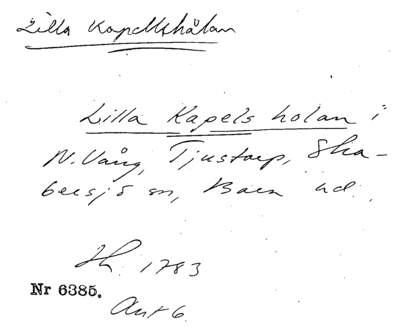 Lilla Kapellshålan
Lilla Kapels holan i
N. Vång, Tjustorp, Ska-
beesjö sn, Bara hd.
Lh. 1783
Nr 6385.
Akt 6